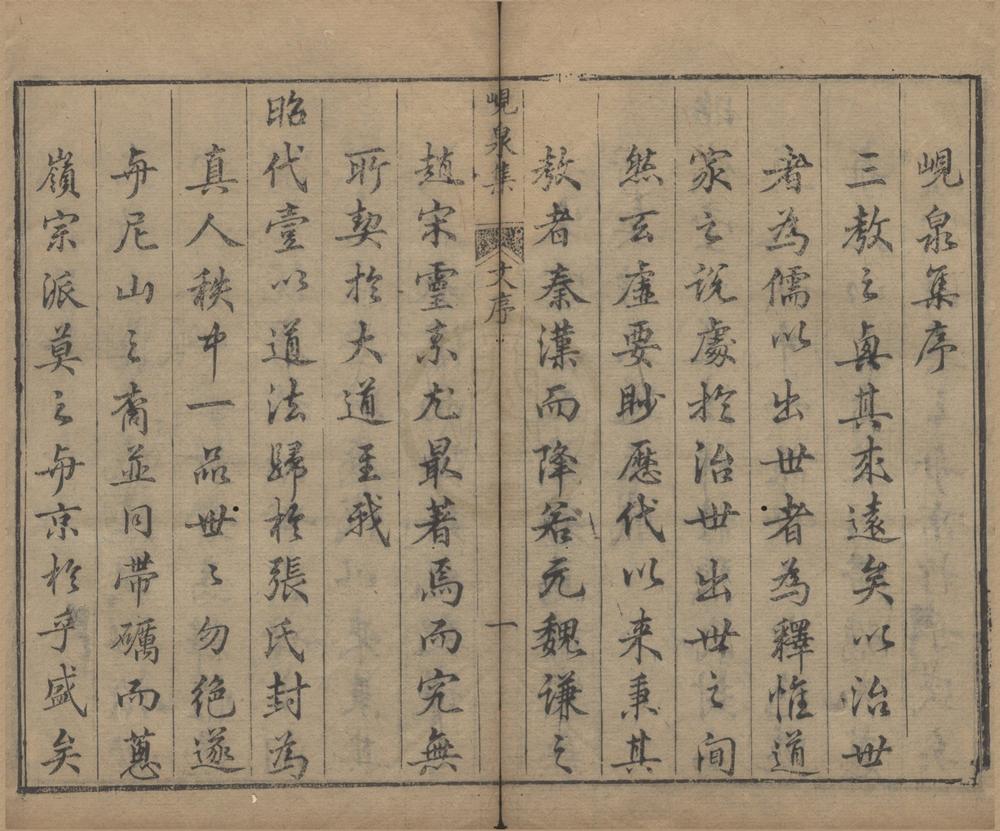 峴泉集序
三教之興其來遠矣以治世
者為儒以出世者為釋惟道
家之說處於治世出世之間
然玄虛要眇歷代以来秉其
教者秦漢而降若元魏謙之
峴泉集
文序
一
趙宋靈素尤最著焉而究無
所契於大道至我
昭代壹以道法歸於張氏封為
真人秩中一品世〻勿絕遂
與尼山之裔並同帶礪而蔥
嶺宗派莫之與京於乎盛矣